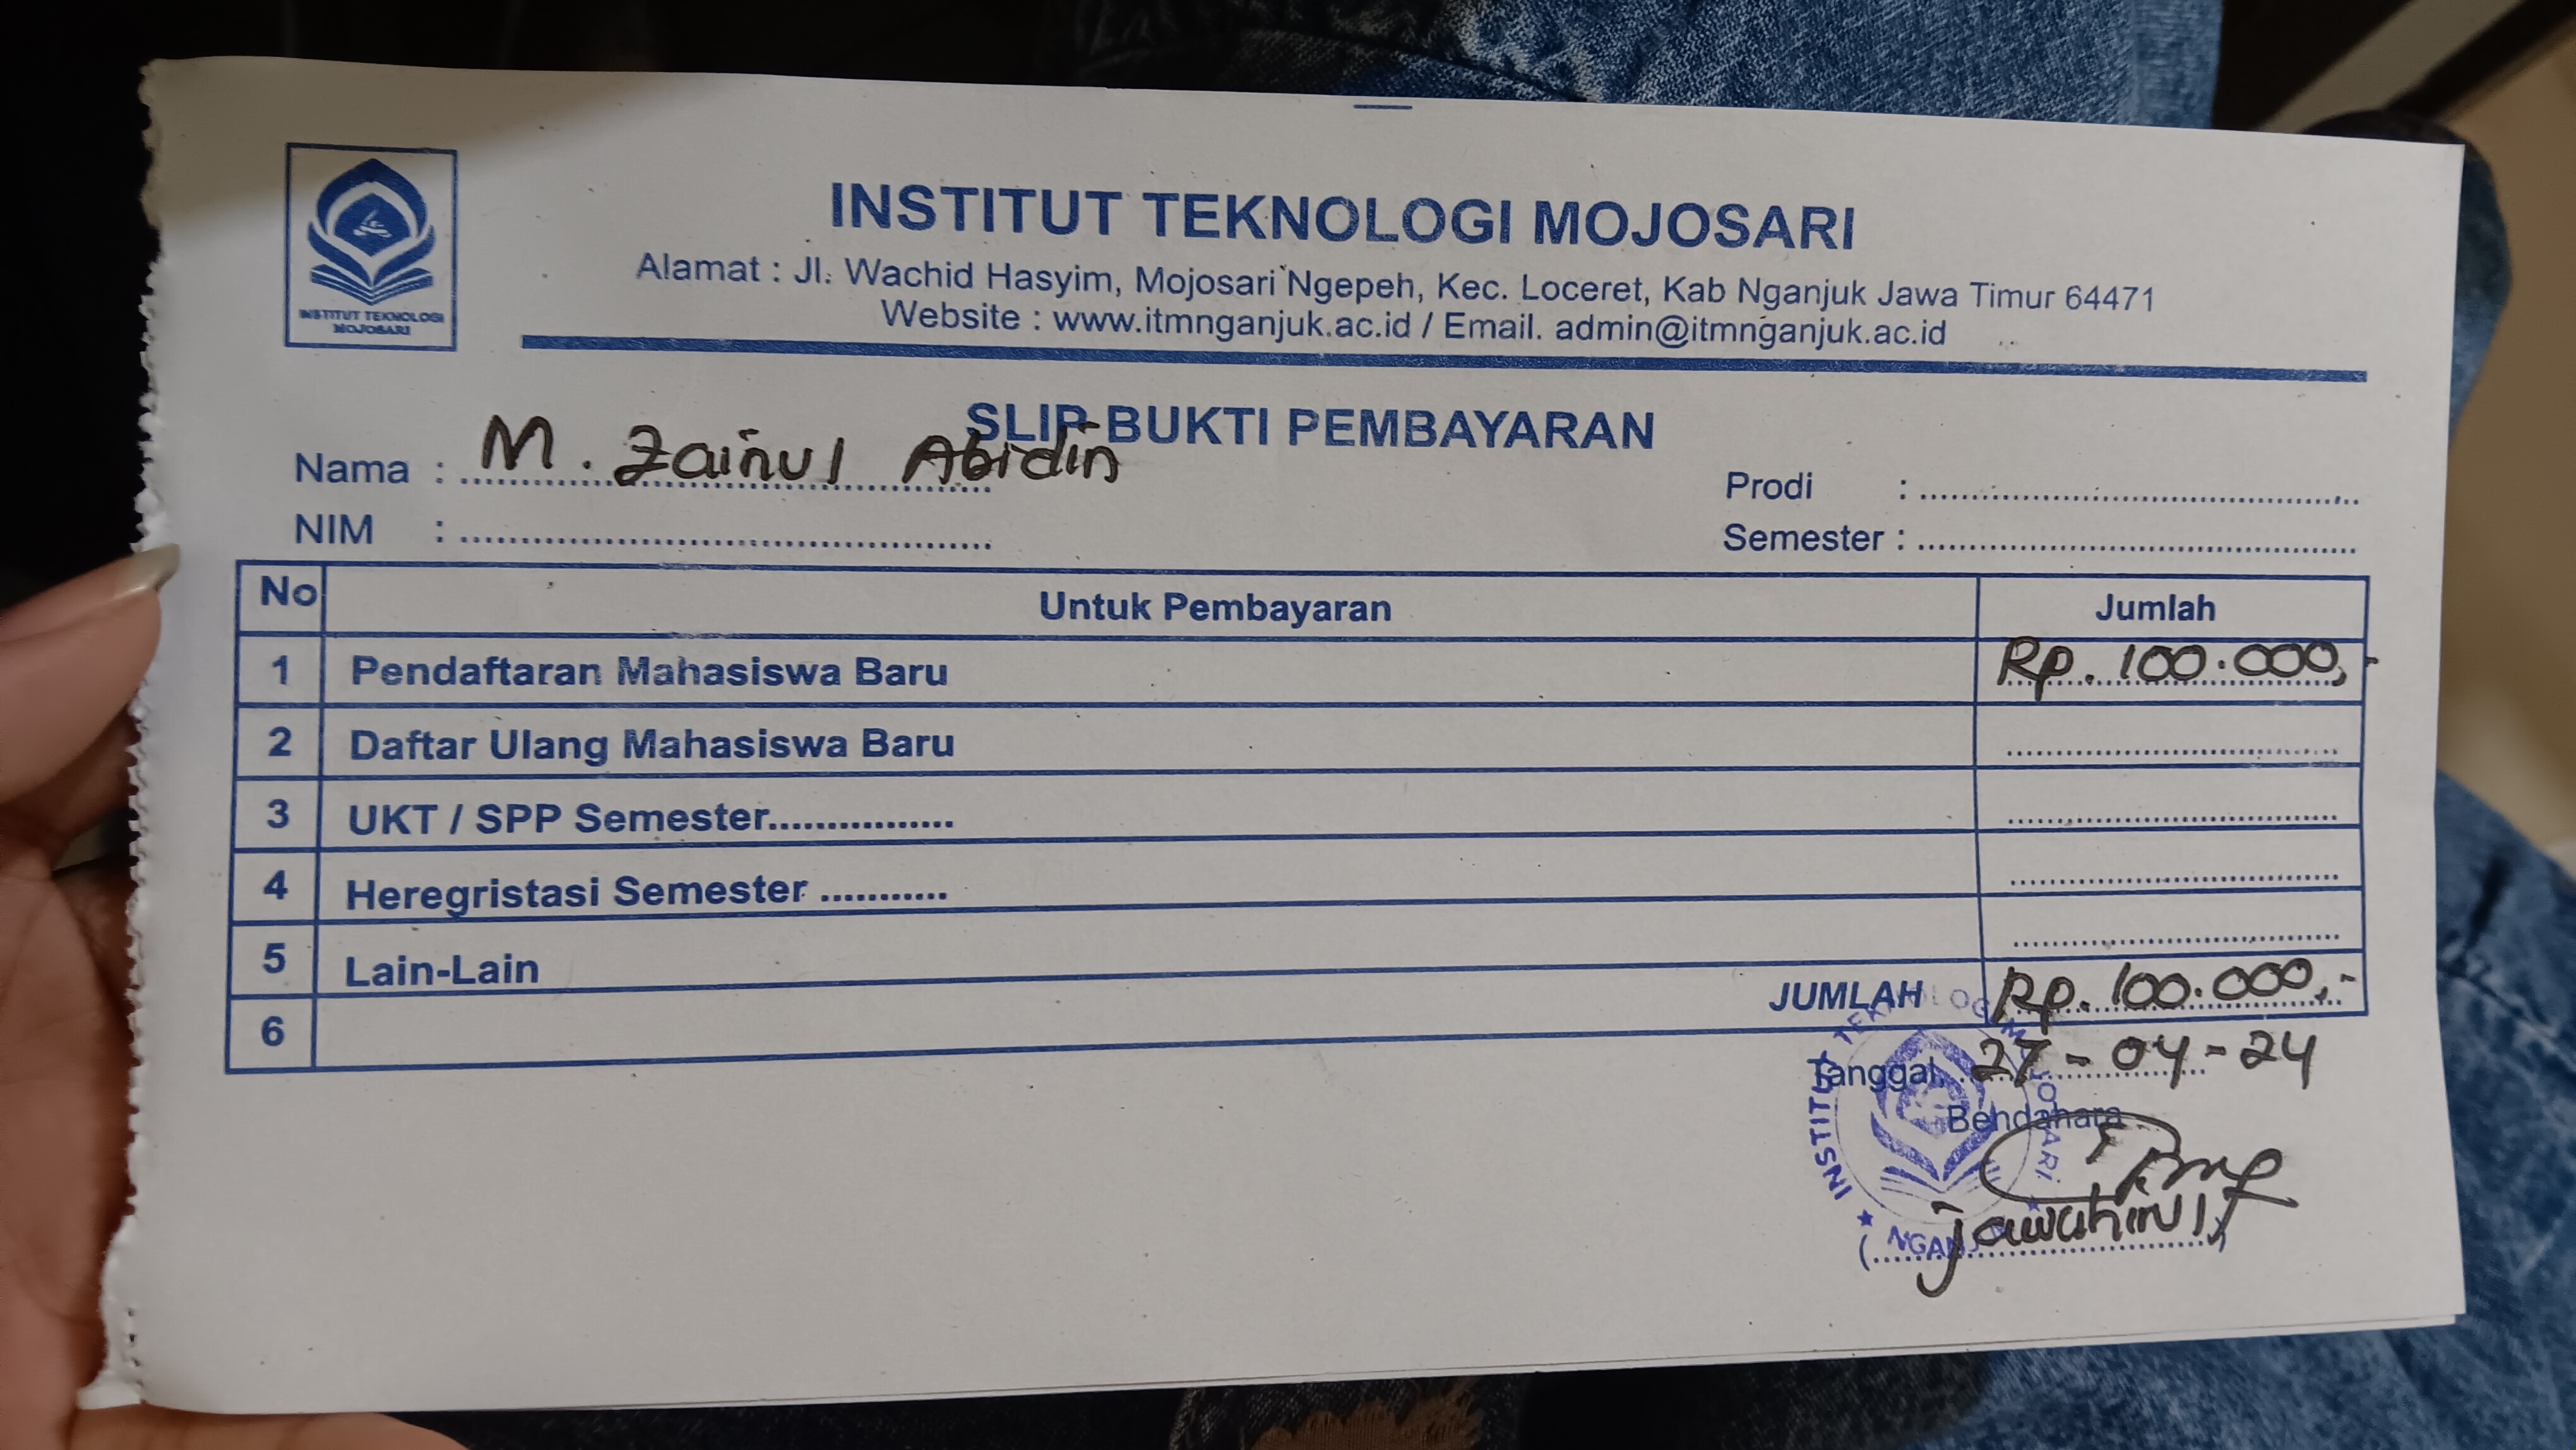 INSTITUT TEKNOLOGI
MOJOSARI
INSTITUT TEKNOLOGI MOJOSARI
Alamat : Jl. Wachid Hasyim, Mojosari Ngepeh, Kec. Loceret, Kab Nganjuk Jawa Timur 64471
Website : www.itmnganjuk.ac.id / Email. admin@itmnganjuk.ac.id
SLIP BUKTI PEMBAYARAN
Nama : M. Zainul Abidin
Prodi :
NIM :
Semester :
No Untuk Pembayaran Jumlah
1 Pendaftaran Mahasiswa Baru Rp. 100.000,-
2 Daftar Ulang Mahasiswa Baru
3 UKT / SPP Semester.................
4 Heregristasi Semester ...........
5 Lain-Lain
6 JUMLAH Rp. 100.000,-
Tanggal, 27-04-24
Bendahara
INSTITUT TEKNOLOGI MOJOSARI